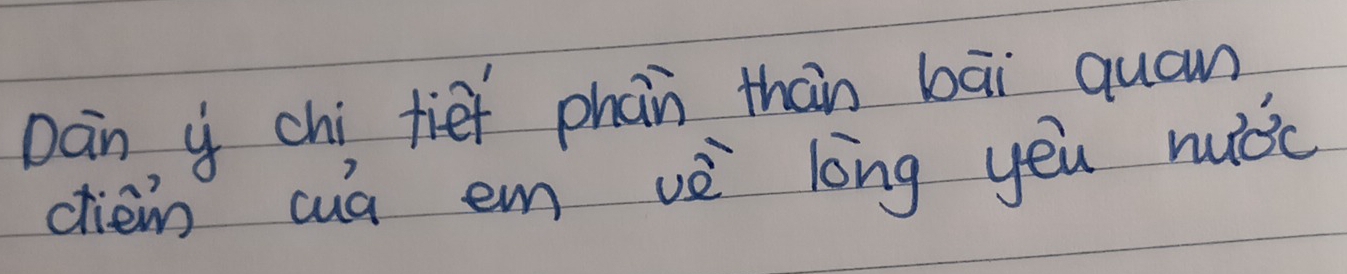 Dàn ý chi tiết phần thân bài quan
điểm của em về lòng yêu nước